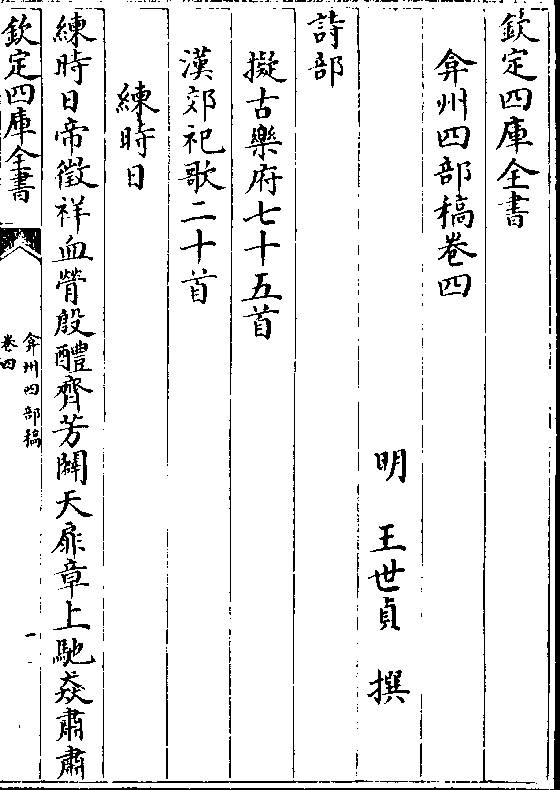 欽定四庫全書
弇州四部稿卷四
明 王世貞 撰
詩部
擬古樂府七十五首
漢郊祀歌二十首
練時日
練時日帝徵祥血膋殷醴齊芳闢天扉章上馳焱肅肅
欽定四庫全書
弇州四部稿
卷四
一